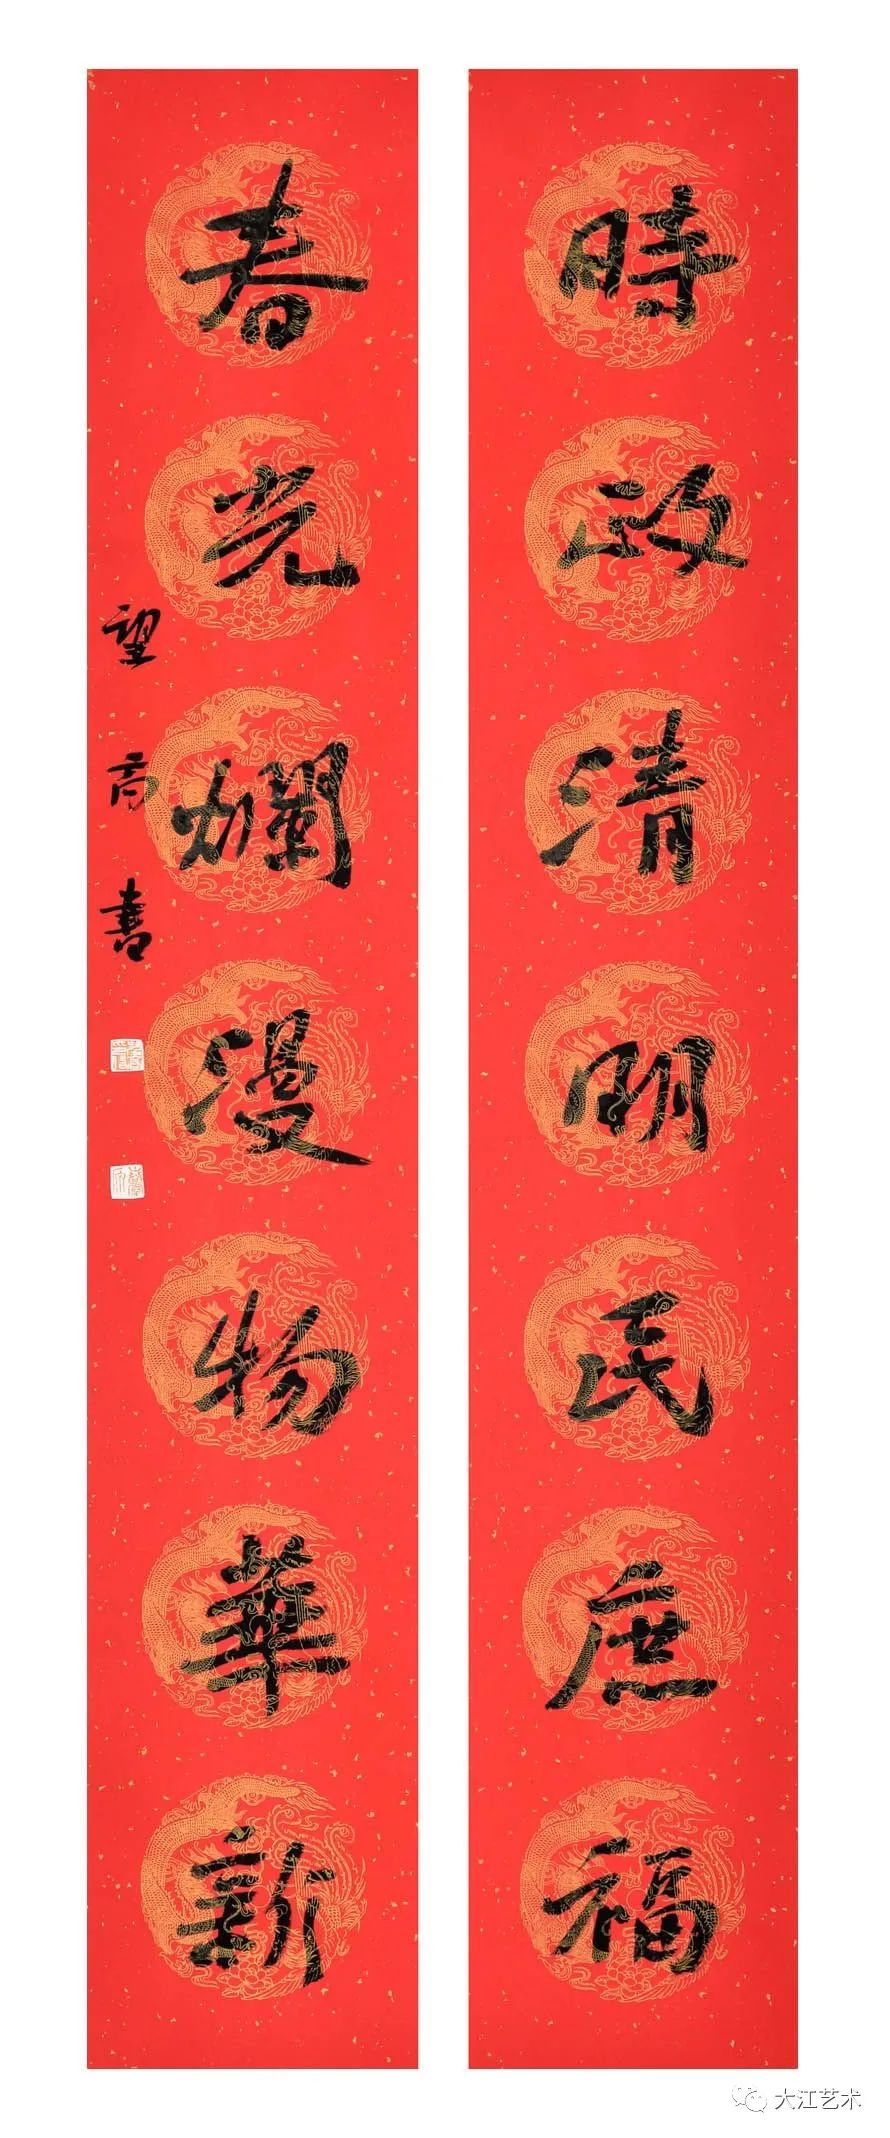 時政清明民庶福
春光爛漫物華新
望高書
大江艺术